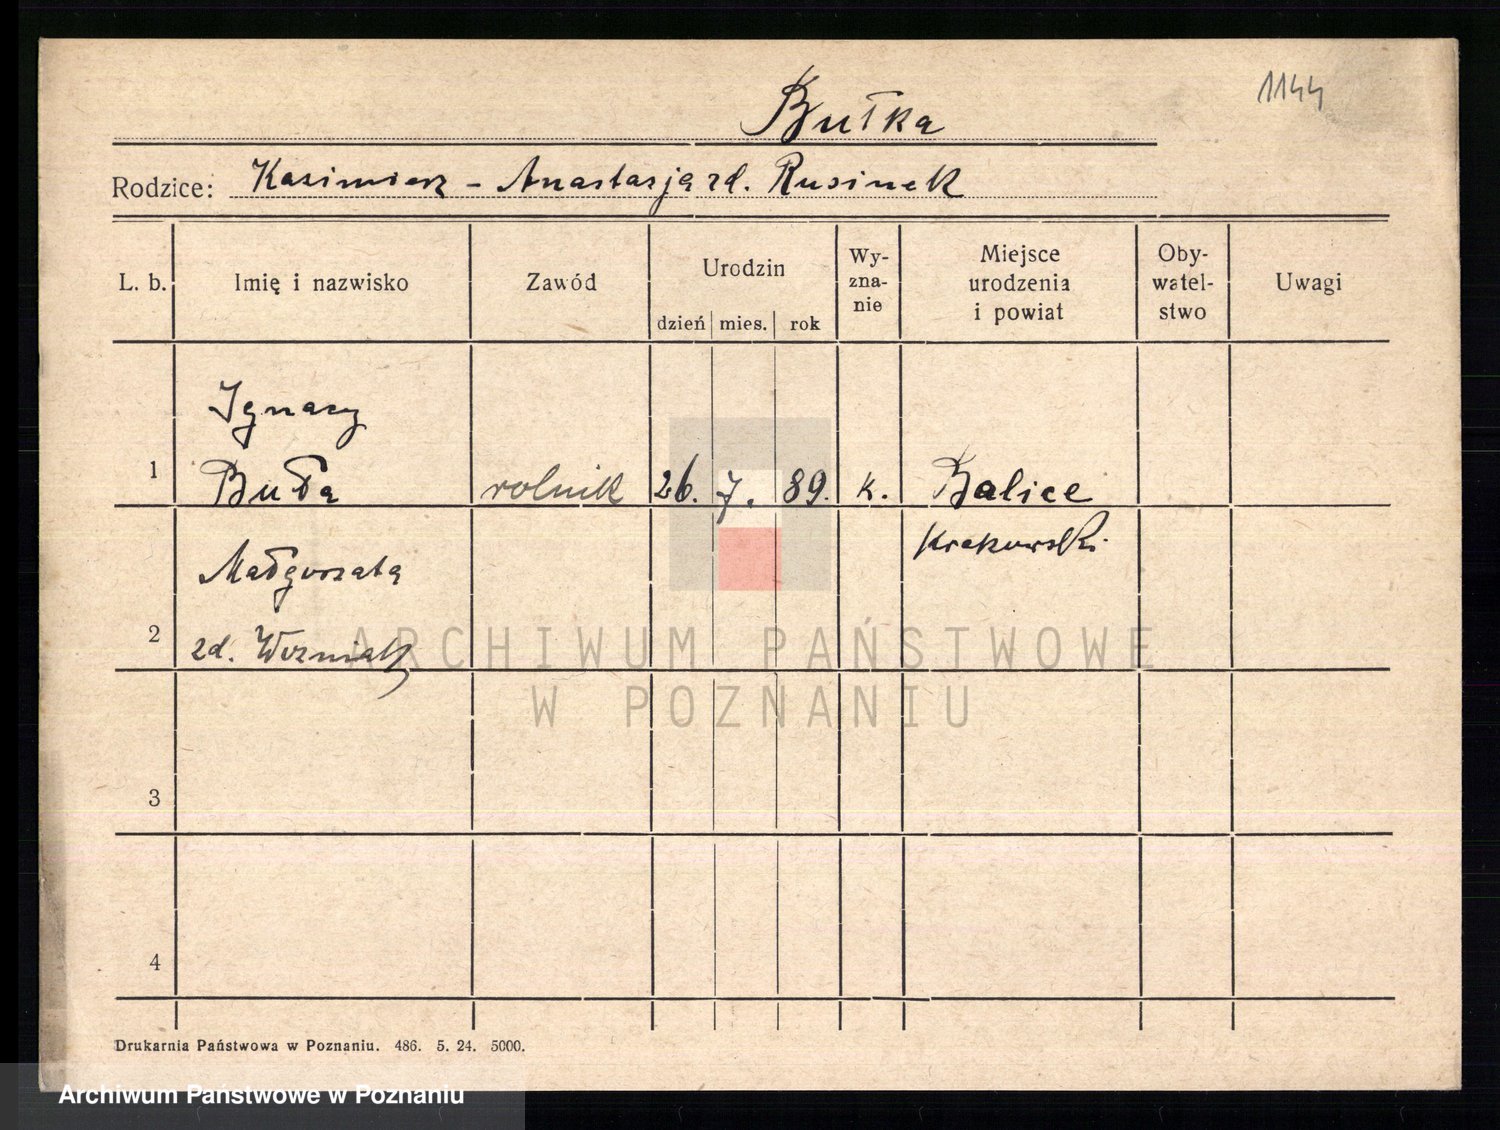 1144
Bułka
Rodzice: Kazimierz - Anastazja zd. Rusinek
L. b. Imię i nazwisko Zawód Urodzin Wy-zna-nie Miejsce urodzenia i powiat Oby-watel-stwo Uwagi
dzień mies. rok
Ignacy
1 Buła rolnik 26. 7. 89. k. Balice
Krakowski
Małgorzata
2 zd. Woźniak
ARCHIWUM PAŃSTWOWE
W POZNANIU
3
4
Drukarnia Państwowa w Poznaniu. 486. 5. 24. 5000.
Archiwum Państwowe w Poznaniu